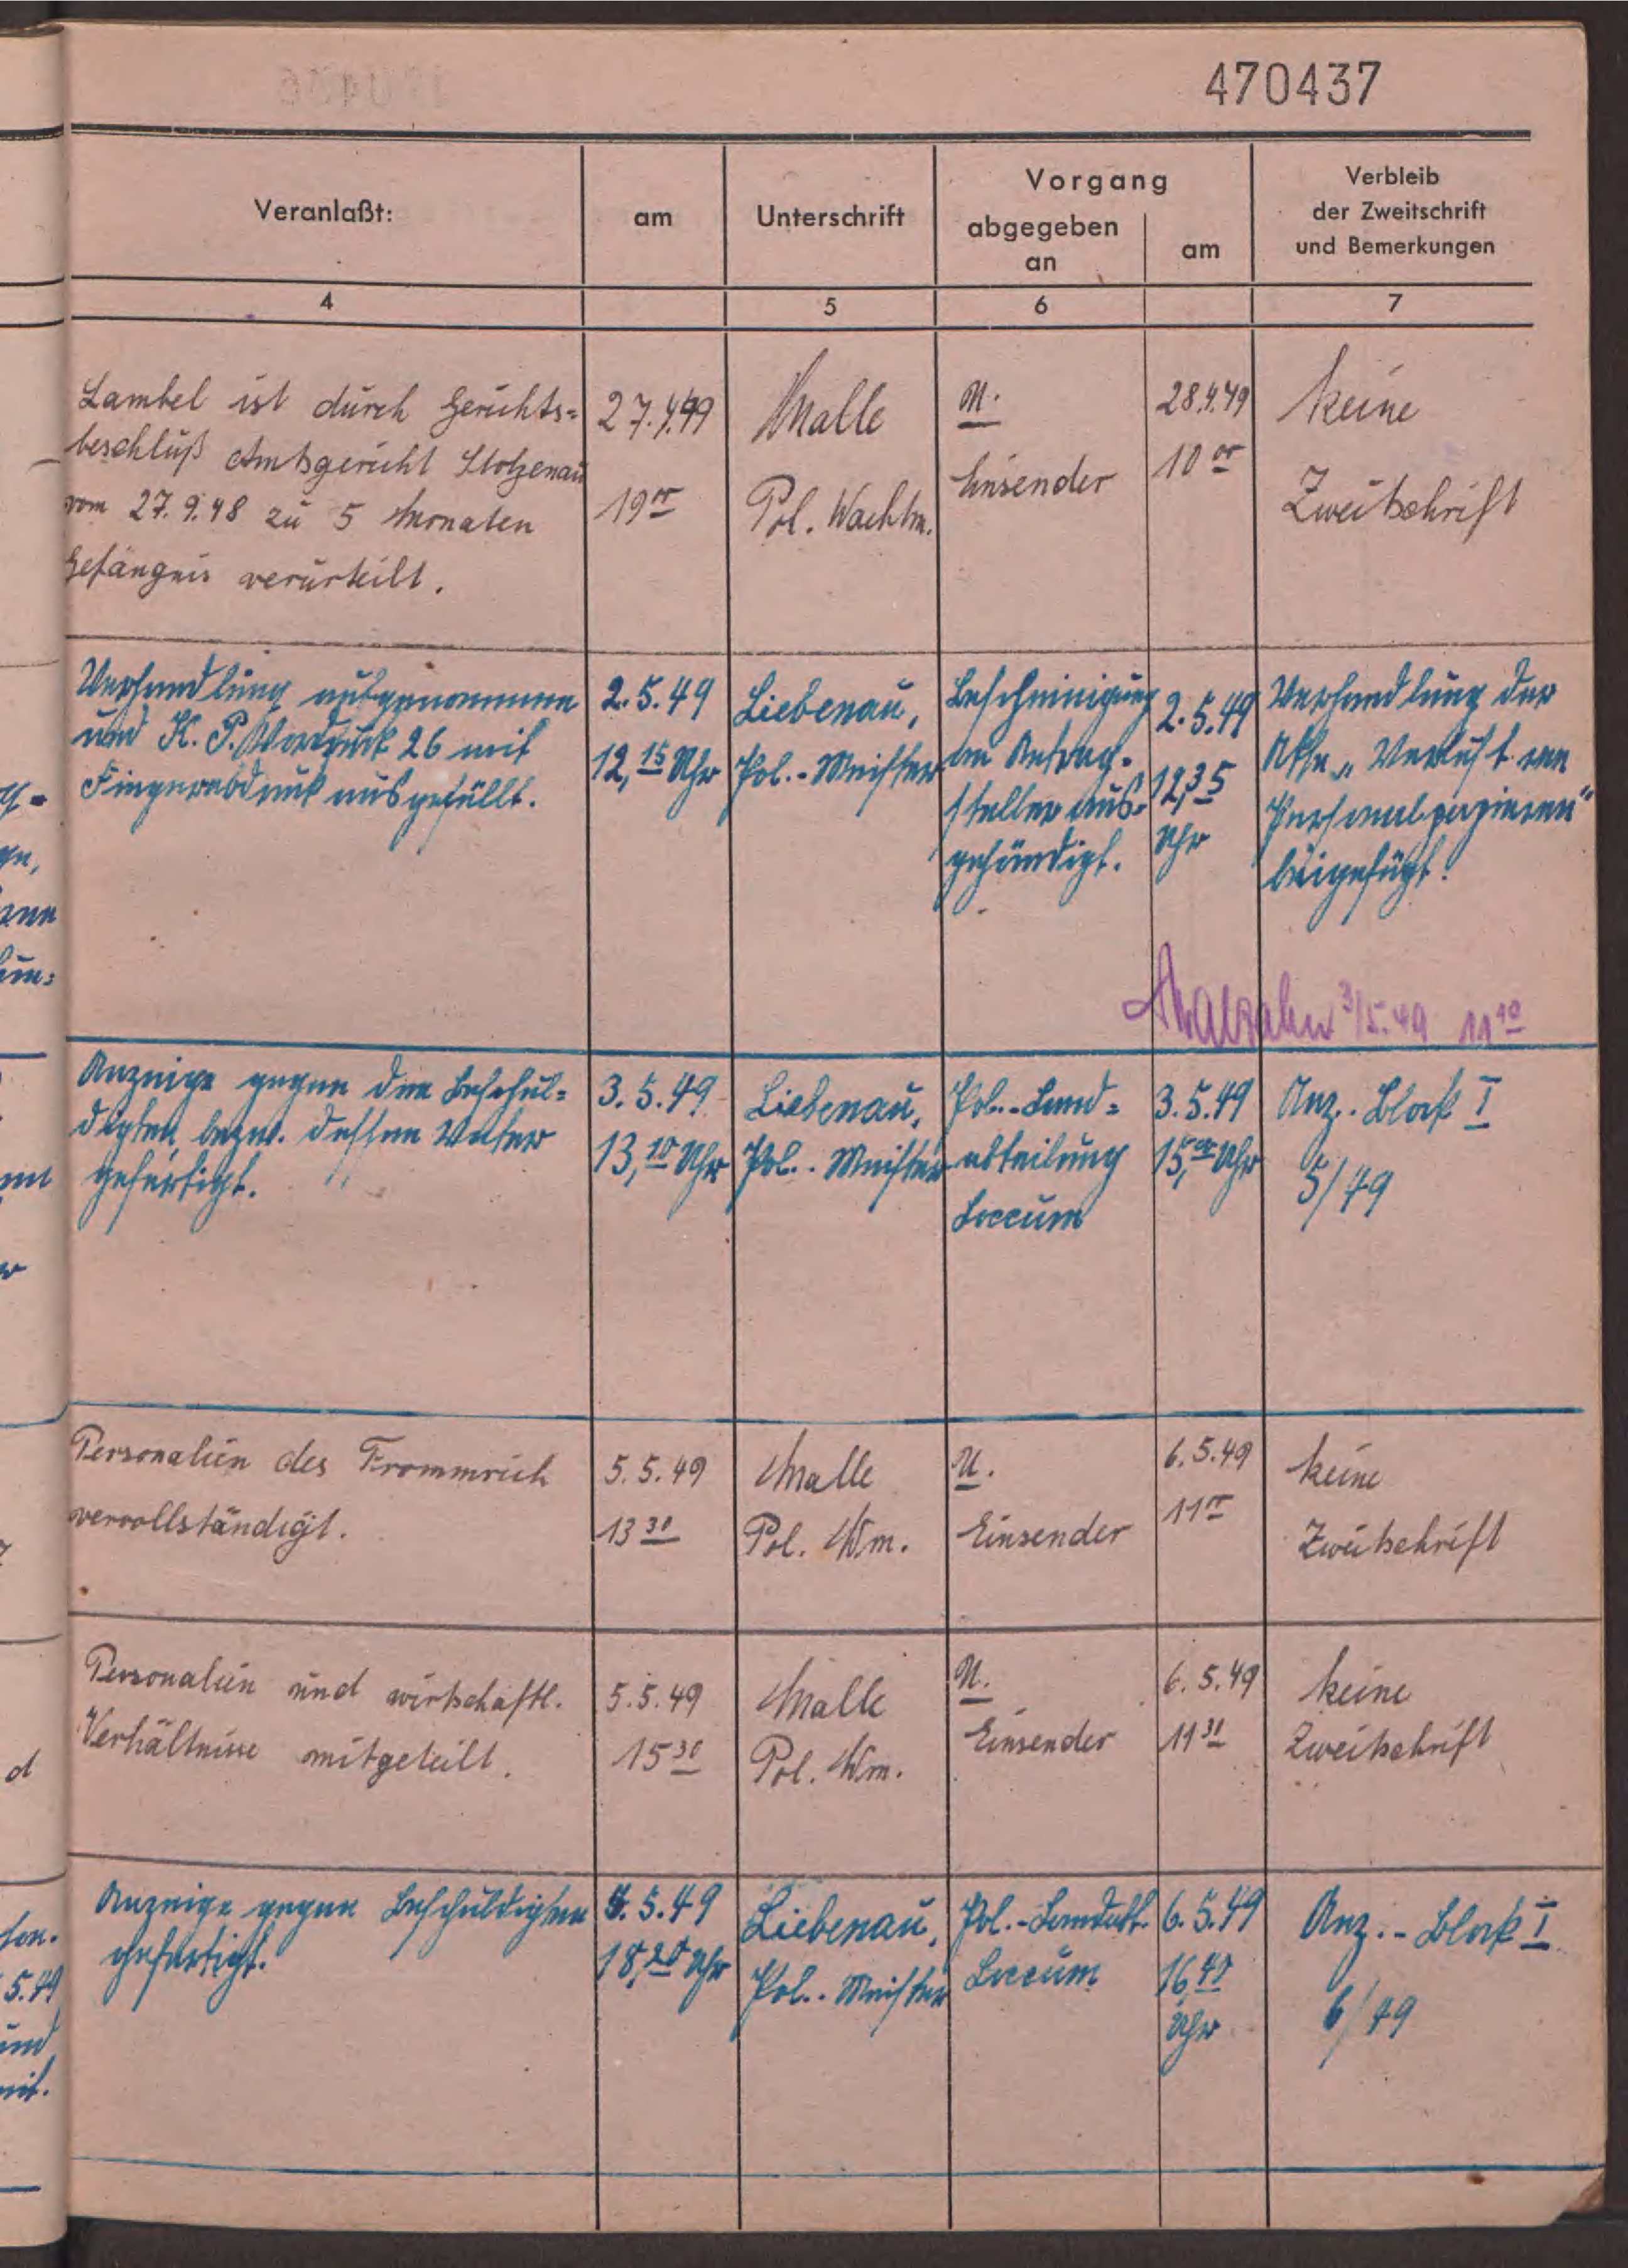 470437
Veranlaßt:
am
Unterschrift
Vorgang
abgegeben
an
am
Verbleib
der Zweitschrift
und Bemerkungen
4
5
6
7
Lambel ist durch Gerichts=
beschluß Amtsgericht Stolzenau
vom 27.9.48 zu 5 Monaten
Gefängnis verurteilt.
27.4.49
19 00
Malle
Pol. Wachtm.
U.
Einsender
28.4.49
10 00
keine
Zweitschrift
Verhandlung aufgenommen
und K. P. Vordruck 26 mit
Fingerabdruck ausgefüllt.
2.5.49
12,15 Uhr
Liebenau,
Pol.-Meister
Bescheinigung
an Antrag-
steller aus-
gehändigt.
2.5.49
12,35
Uhr
Verhandlung der
Akte „Verlust von
Personalpapieren"
beigefügt.
3/5.49 11 10
Anzeige gegen den Beschul=
digten bezw. dessen Vater
gefertigt.
3.5.49
13,10 Uhr
Liebenau,
Pol.-Meister
Pol.-Land=
abteilung
Loccum
3.5.49
15,00 Uhr
Anz.-Block I
5/49
Personalien des Frommrich
vervollständigt.
5.5.49
13 30
Malle
Pol. Wm.
U.
Einsender
6.5.49
11 00
keine
Zweitschrift
Personalien und wirtschaftl.
Verhältnisse mitgeteilt.
5.5.49
15 30
Malle
Pol. Wm.
U.
Einsender
6.5.49
11 30
keine
Zweitschrift
Anzeige gegen Beschuldigten
gefertigt.
5.5.49
18,20 Uhr
Liebenau,
Pol.-Meister
Pol.-Landabt.
Loccum
6.5.49
16,40
Uhr
Anz.-Block I
6/49